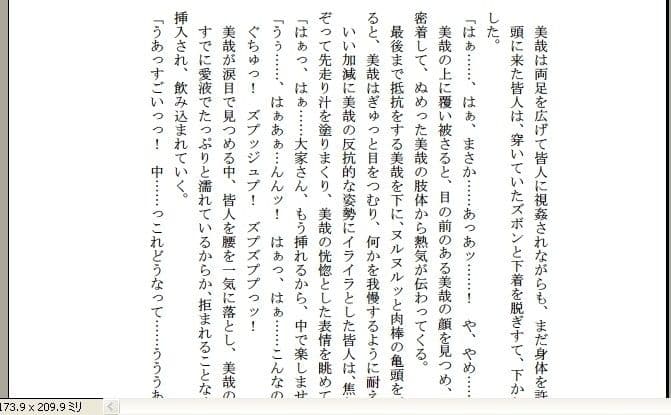 美哉は両足を広げて皆人に視姦されながらも、まだ身体を許
頭に来た皆人は、穿いていたズボンと下着を脱ぎすて、下か
した。
「はぁ……、はぁ、まさか……あっあッ……！　や、やめ……
美哉の上に覆い被さると、目の前のある美哉の顔を見つめ、
密着して、ぬめった美哉の肢体から熱気が伝わってくる。
最後まで抵抗をする美哉を下に、ヌルヌルッと肉棒の亀頭を
ると、美哉はぎゅっと目をつむり、何かを我慢するように耐え
いい加減に美哉の反抗的な姿勢にイライラとした皆人は、焦
ぞって先走り汁を塗りまくり、美哉の恍惚とした表情を眺めて
「はぁっ、はぁ……大家さん、もう挿れるから、中で楽しませ
「うぅ……、はぁあぁ…んんッ！　はぁっ、はぁ……こんなの
ぐちゅっ！　ズプッジュプ！　ズプズププっッ！
美哉が涙目で見つめる中、皆人を腰を一気に落とし、美哉の
すでに愛液でたっぷりと濡れているからか、拒まれることな
挿入され、飲み込まれていく。
「うあっすごいっっ！　中……っこれどうなって……うううあ
173.9 x 209.9 ミリ